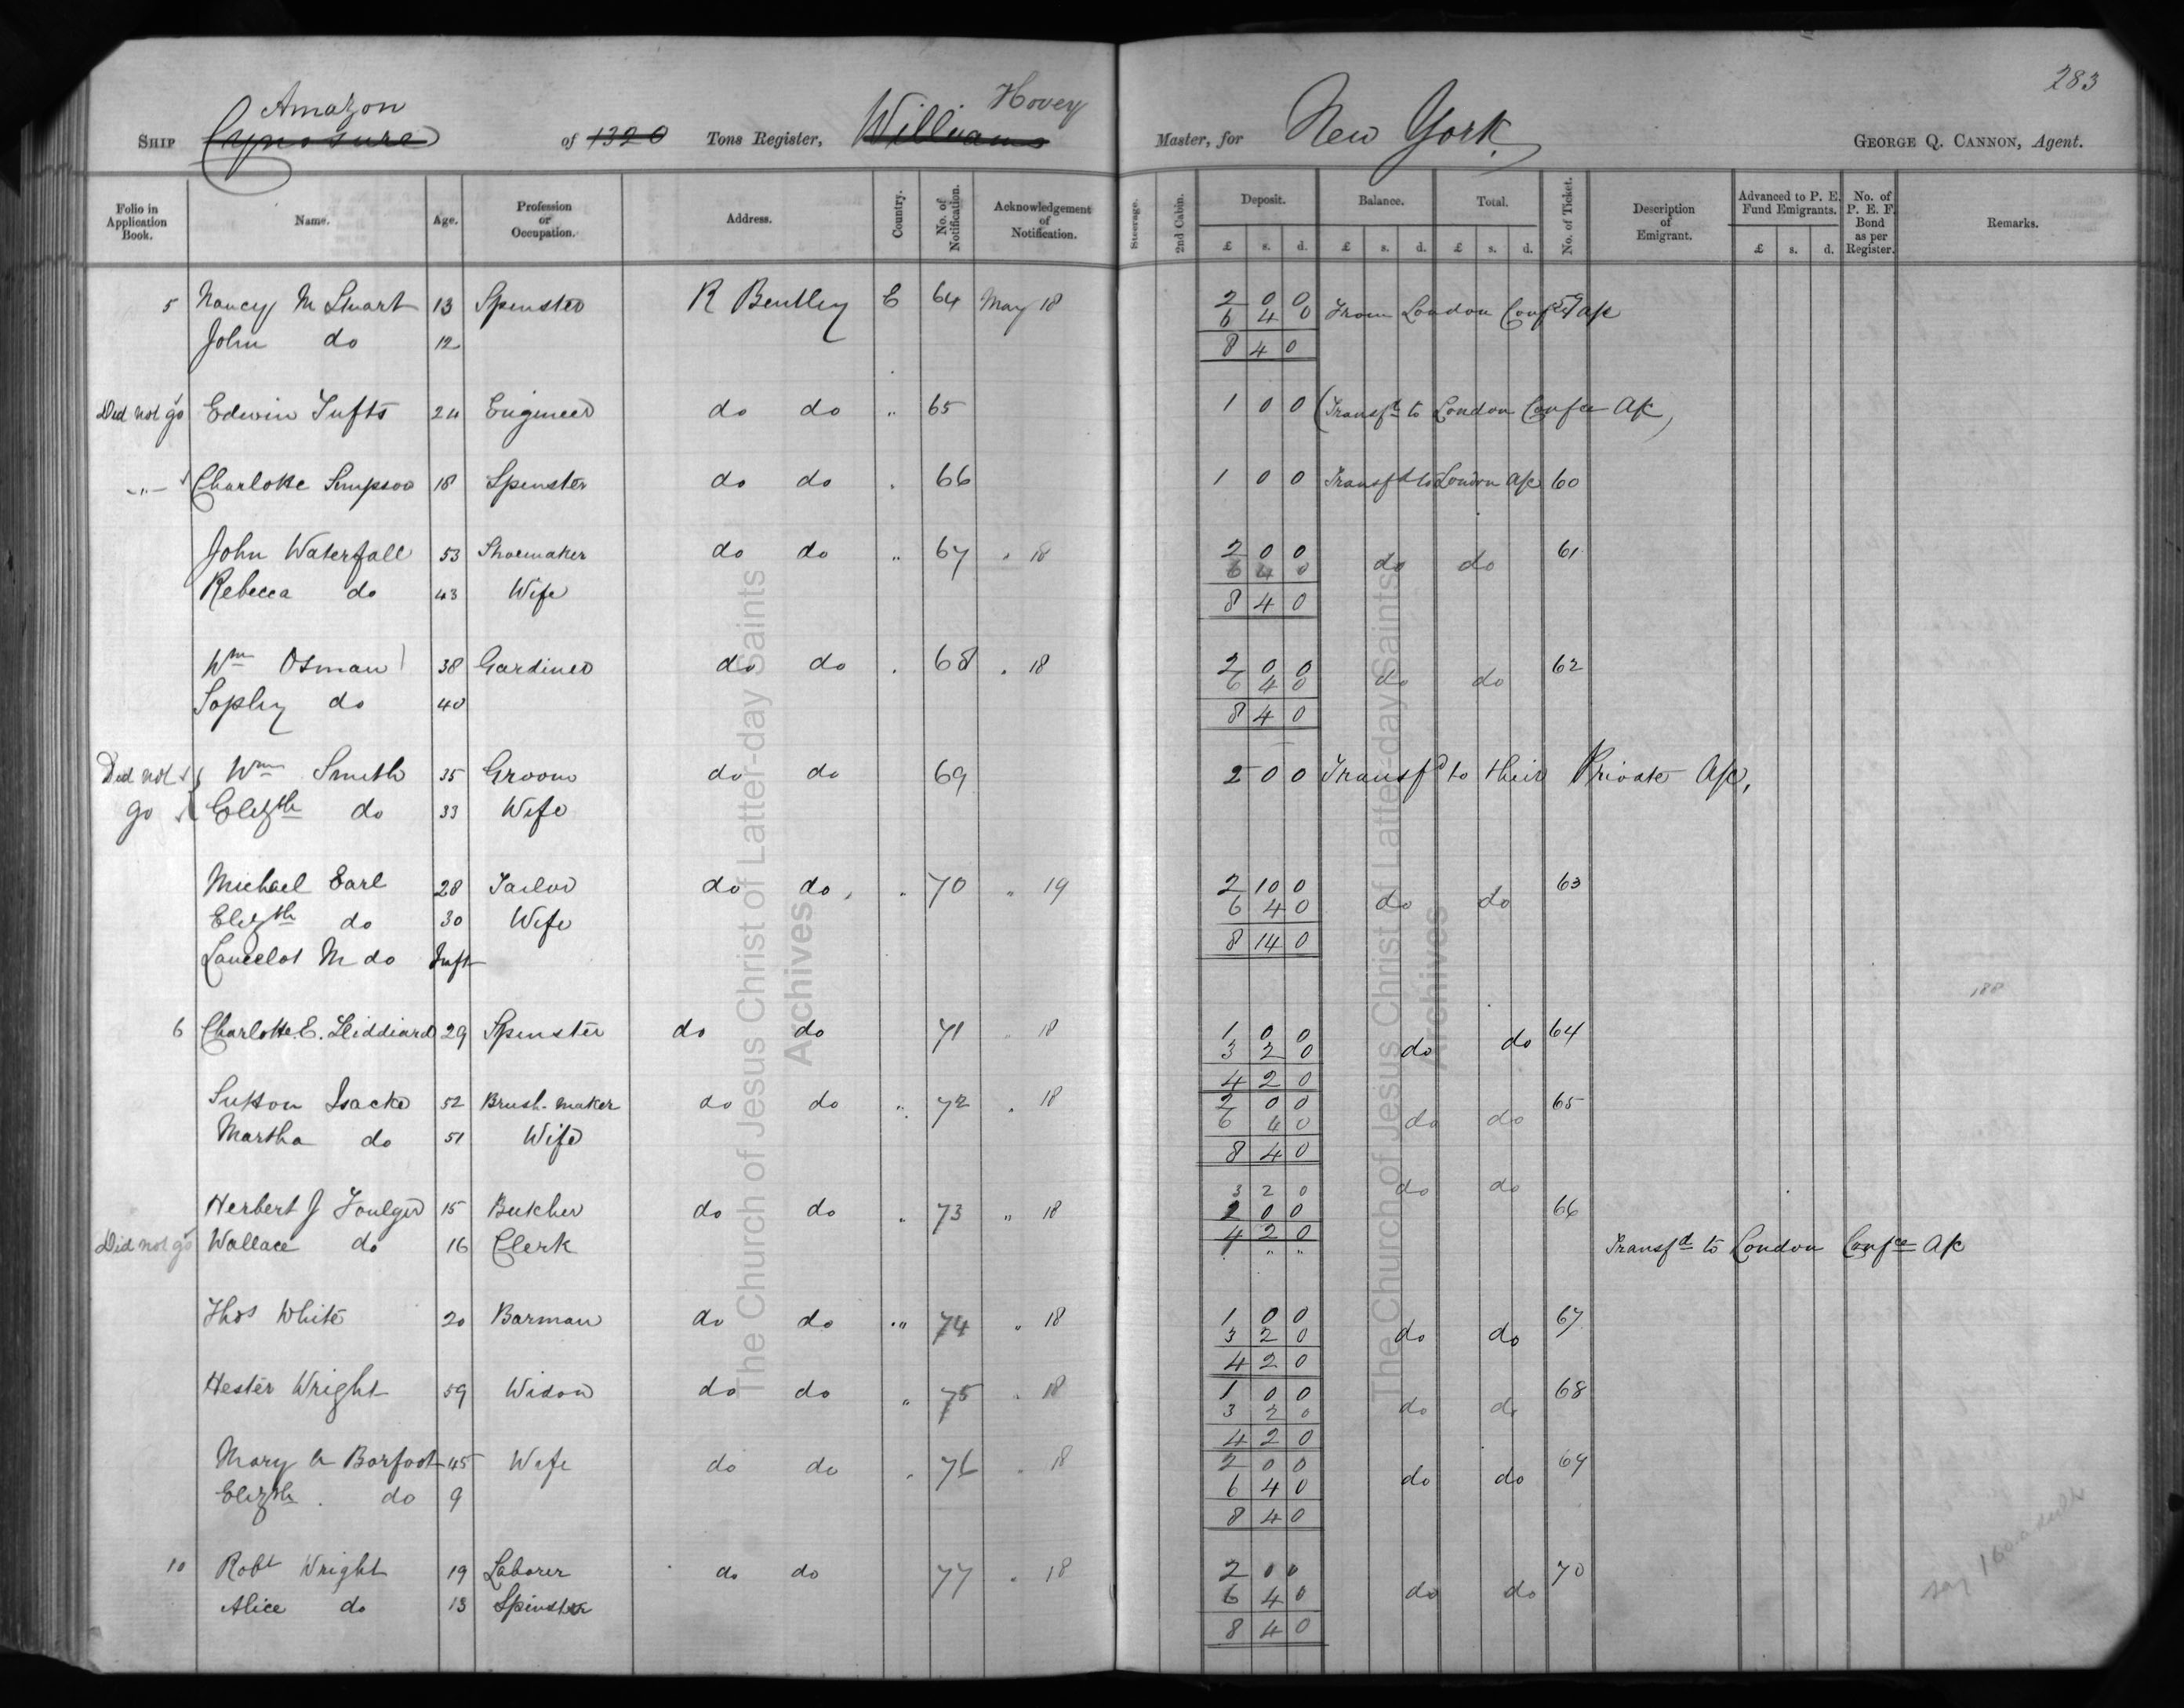 283
Amazon Hovey
SHIP Cynosure of 1320 Tons Register, Williams Master, for New York. GEORGE Q. CANNON, Agent.
Folio in Application Book. Name. Age. Profession or Occupation. Address. Country. No. of Notification. Acknowledgement of Notification. Steerage. 2nd Cabin. Deposit. Balance. Total. No. of Ticket. Description of Emigrant. Advanced to P. E. Fund Emigrants. No. of P. E. F. Bond as per Register. Remarks.
£ s. d. £ s. d. £ s. d. £ s. d.
5 Nancy M Stuart 13 Spinster R Bentley E 64 May 18 2 0 0
6 4 0 From London Confce a/c 59
John do 12 8 4 0
Did not go Edwin Tufts 24 Engineer do do " 65 1 0 0 (Transfd to London Confce A/c)
-"- Charlotte Simpson 18 Spinster do do " 66 1 0 0 Transfd to London A/c 60
John Waterfall 53 Shoemaker do do " 67 " 18 2 0 0 61
6 4 0 do do
Rebecca do 43 Wife 8 4 0
Wm Osman 38 Gardiner do do " 68 " 18 2 0 0 62
6 4 0 do do
Sophy do 40 8 4 0
Did not go Wm Smith 35 Groom do do 69 2 0 0 Transfd to their Private A/c,
Elizth do 33 Wife
Michael Earl 28 Tailor do do " 70 " 19 2 10 0 63
Elizth do 30 Wife 6 4 0 do do
Lancelot M do Inft 8 14 0
188
6 Charlotte E. Liddiard 29 Spinster do do 71 " 18 1 0 0 64
3 2 0 do do
4 2 0
Sutton Isacke 52 Brush-maker do do " 72 " 18 2 0 0 65
6 4 0 do do
Martha do 51 Wife 8 4 0
3 2 0 do do
Herbert J Foulger 15 Butcher do do " 73 " 18 1 0 0 66
4 2 0
Did not go Wallace do 16 Clerk 1 " " Transfd to London Confce A/c
Thos White 20 Barman do do " 74 " 18 1 0 0 67
3 2 0 do do
4 2 0
Hester Wright 59 Widow do do " 75 " 18 1 0 0 68
3 2 0 do do
4 2 0
Mary A Barfoot 45 Wife do do " 76 " 18 2 0 0 69
Elizth do 9 6 4 0 do do
8 4 0
10 Robt Wright 19 Laborer do do 77 " 18 2 0 0 70
Alice do 13 Spinster 6 4 0 do do
8 4 0
say 160 adults
The Church of Jesus Christ of Latter-day Saints
Archives
The Church of Jesus Christ of Latter-day Saints
Archives